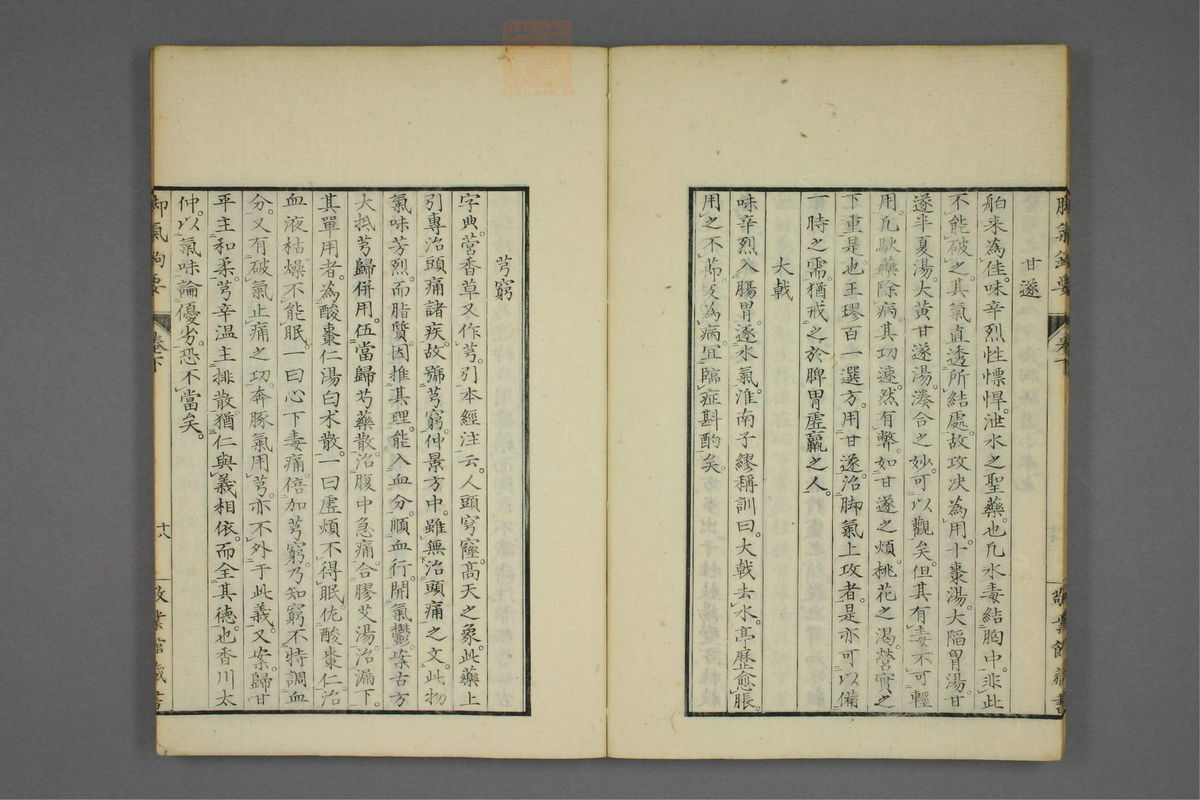 甘遂
舶来為佳。味辛烈性慓悍。泄水之聖藥也。凡水毒結胸中。非此
不能破之。其氣直透所結處。故攻决為用。十棗湯。大陷胃湯。甘
遂半夏湯。大黄甘遂湯。湊合之妙。可以觀矣。但其有毒不可輕
用。凡駃藥除病。其功速。然有弊。如甘遂之煩。桃花之渴。營實之
下重是也。王璆百一選方。用甘遂。治脚氣上攻者。是亦可以備
一時之需。猶戒之於脾胃虛羸之人。
大戟
味辛烈。入腸胃。逐水氣。淮南子繆稱訓曰。大戟去水。亭歷愈脹。
用之不節。反為病。宜臨症斟酌矣。
芎窮
字典。营香草。又作芎。引本經注云。人頭穹窿高天之象。此藥上
引專治頭痛諸疾。故號芎窮。仲景方中。雖無治頭痛之文。此物
氣味芳烈。而脂質。因推其理。能入血分。順血行。開氣鬱。案古方
大抵芎歸併用。伍當歸芍藥散。治腹中急痛。合膠艾湯。治漏下。
其單用者。為酸棗仁湯白朮散。一曰虛煩不得眠。佐酸棗仁。治
血液枯燥不能眠。一曰心下毒痛。倍加芎窮。乃知窮不特調血
分。又有破氣止痛之功。奔豚氣用芎。亦不外于此義。又案。歸甘
平主和柔。芎辛温主排散。猶仁與義相依。而全其德也。香川太
仲。以氣味論優劣。恐不當矣。
卷下
十八
敬業館藏書